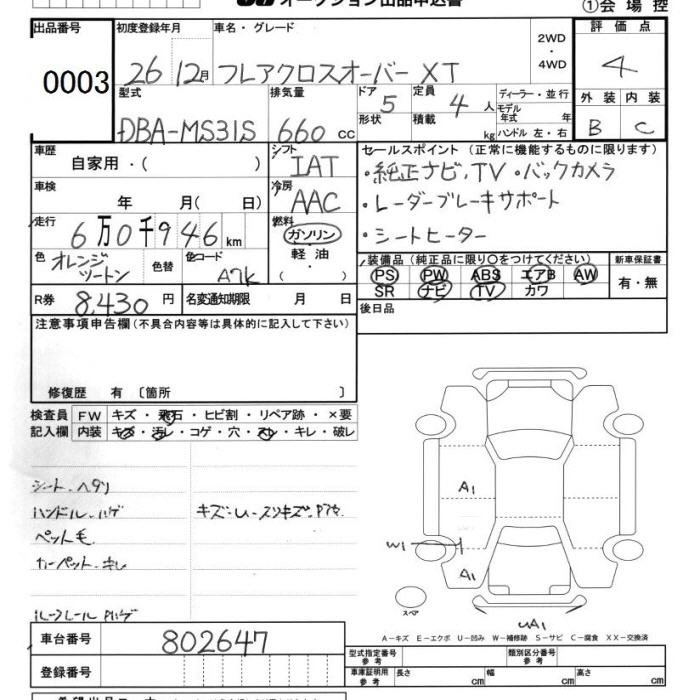 オークション出品申込書
①会場控
出品番号 0003
初度登録年月 26 12月
車名・グレード フレアクロスオーバー XT
2WD ・ 4WD
評価点 4
型式 DBA-MS31S
排気量 660 cc
ドア 5 形状
定員 4 人 積載 kg
ディーラー・並行
モデル年式 年
ハンドル 左・右
外装 内装
B C
車歴 自家用・( )
シフト IAT
セールスポイント (正常に機能するものに限ります)
・純正ナビ,TV・バックカメラ
・レーダーブレーキサポート
・シートヒーター
車検 年 月( 日)
冷房 AAC
走行 6万0千946km
燃料 ガソリン
軽油・
( )
色 オレンジツートン 色替 色コード A7K
装備品 (純正品に限り○をつけてください) 新車保証書
PS PW ABS エアB AW 有・無
SR ナビ TV カワ
R券 8,430円 名変通知期限 月 日
後日品
注意事項申告欄 (不具合内容等は具体的に記入して下さい)
修復歴 有 〔箇所 〕
検査員 FW キズ・飛石・ヒビ割・リペア跡・×要
記入欄 内装 キズ・汚レ・コゲ・穴・スレ・キレ・破レ
シート・ヘタリ
ハンドル・ハゲ
ペット毛
カーペット・キレ
ルーフレール
A1
W1
A1
スペア
UA1
A―キズ E―エクボ U―凹み W―補修跡 S―サビ C―腐食 XX―交換済
車台番号 802647
登録番号
型式指定番号 参考 類別区分番号 参考
車庫証明用 参考 長さ cm 幅 cm 高さ cm